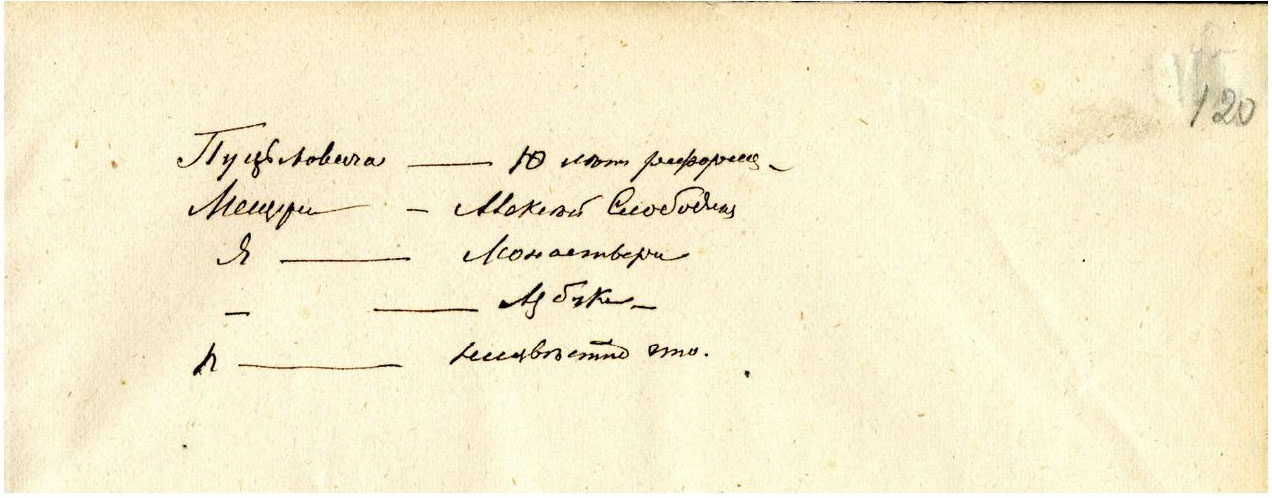 120
Пуцыловича — 10 лѣт реформ
Мещерс — Алексѣй Слободинъ
Я — Монастыри
— — Азбука —
П — неизвѣстно что.